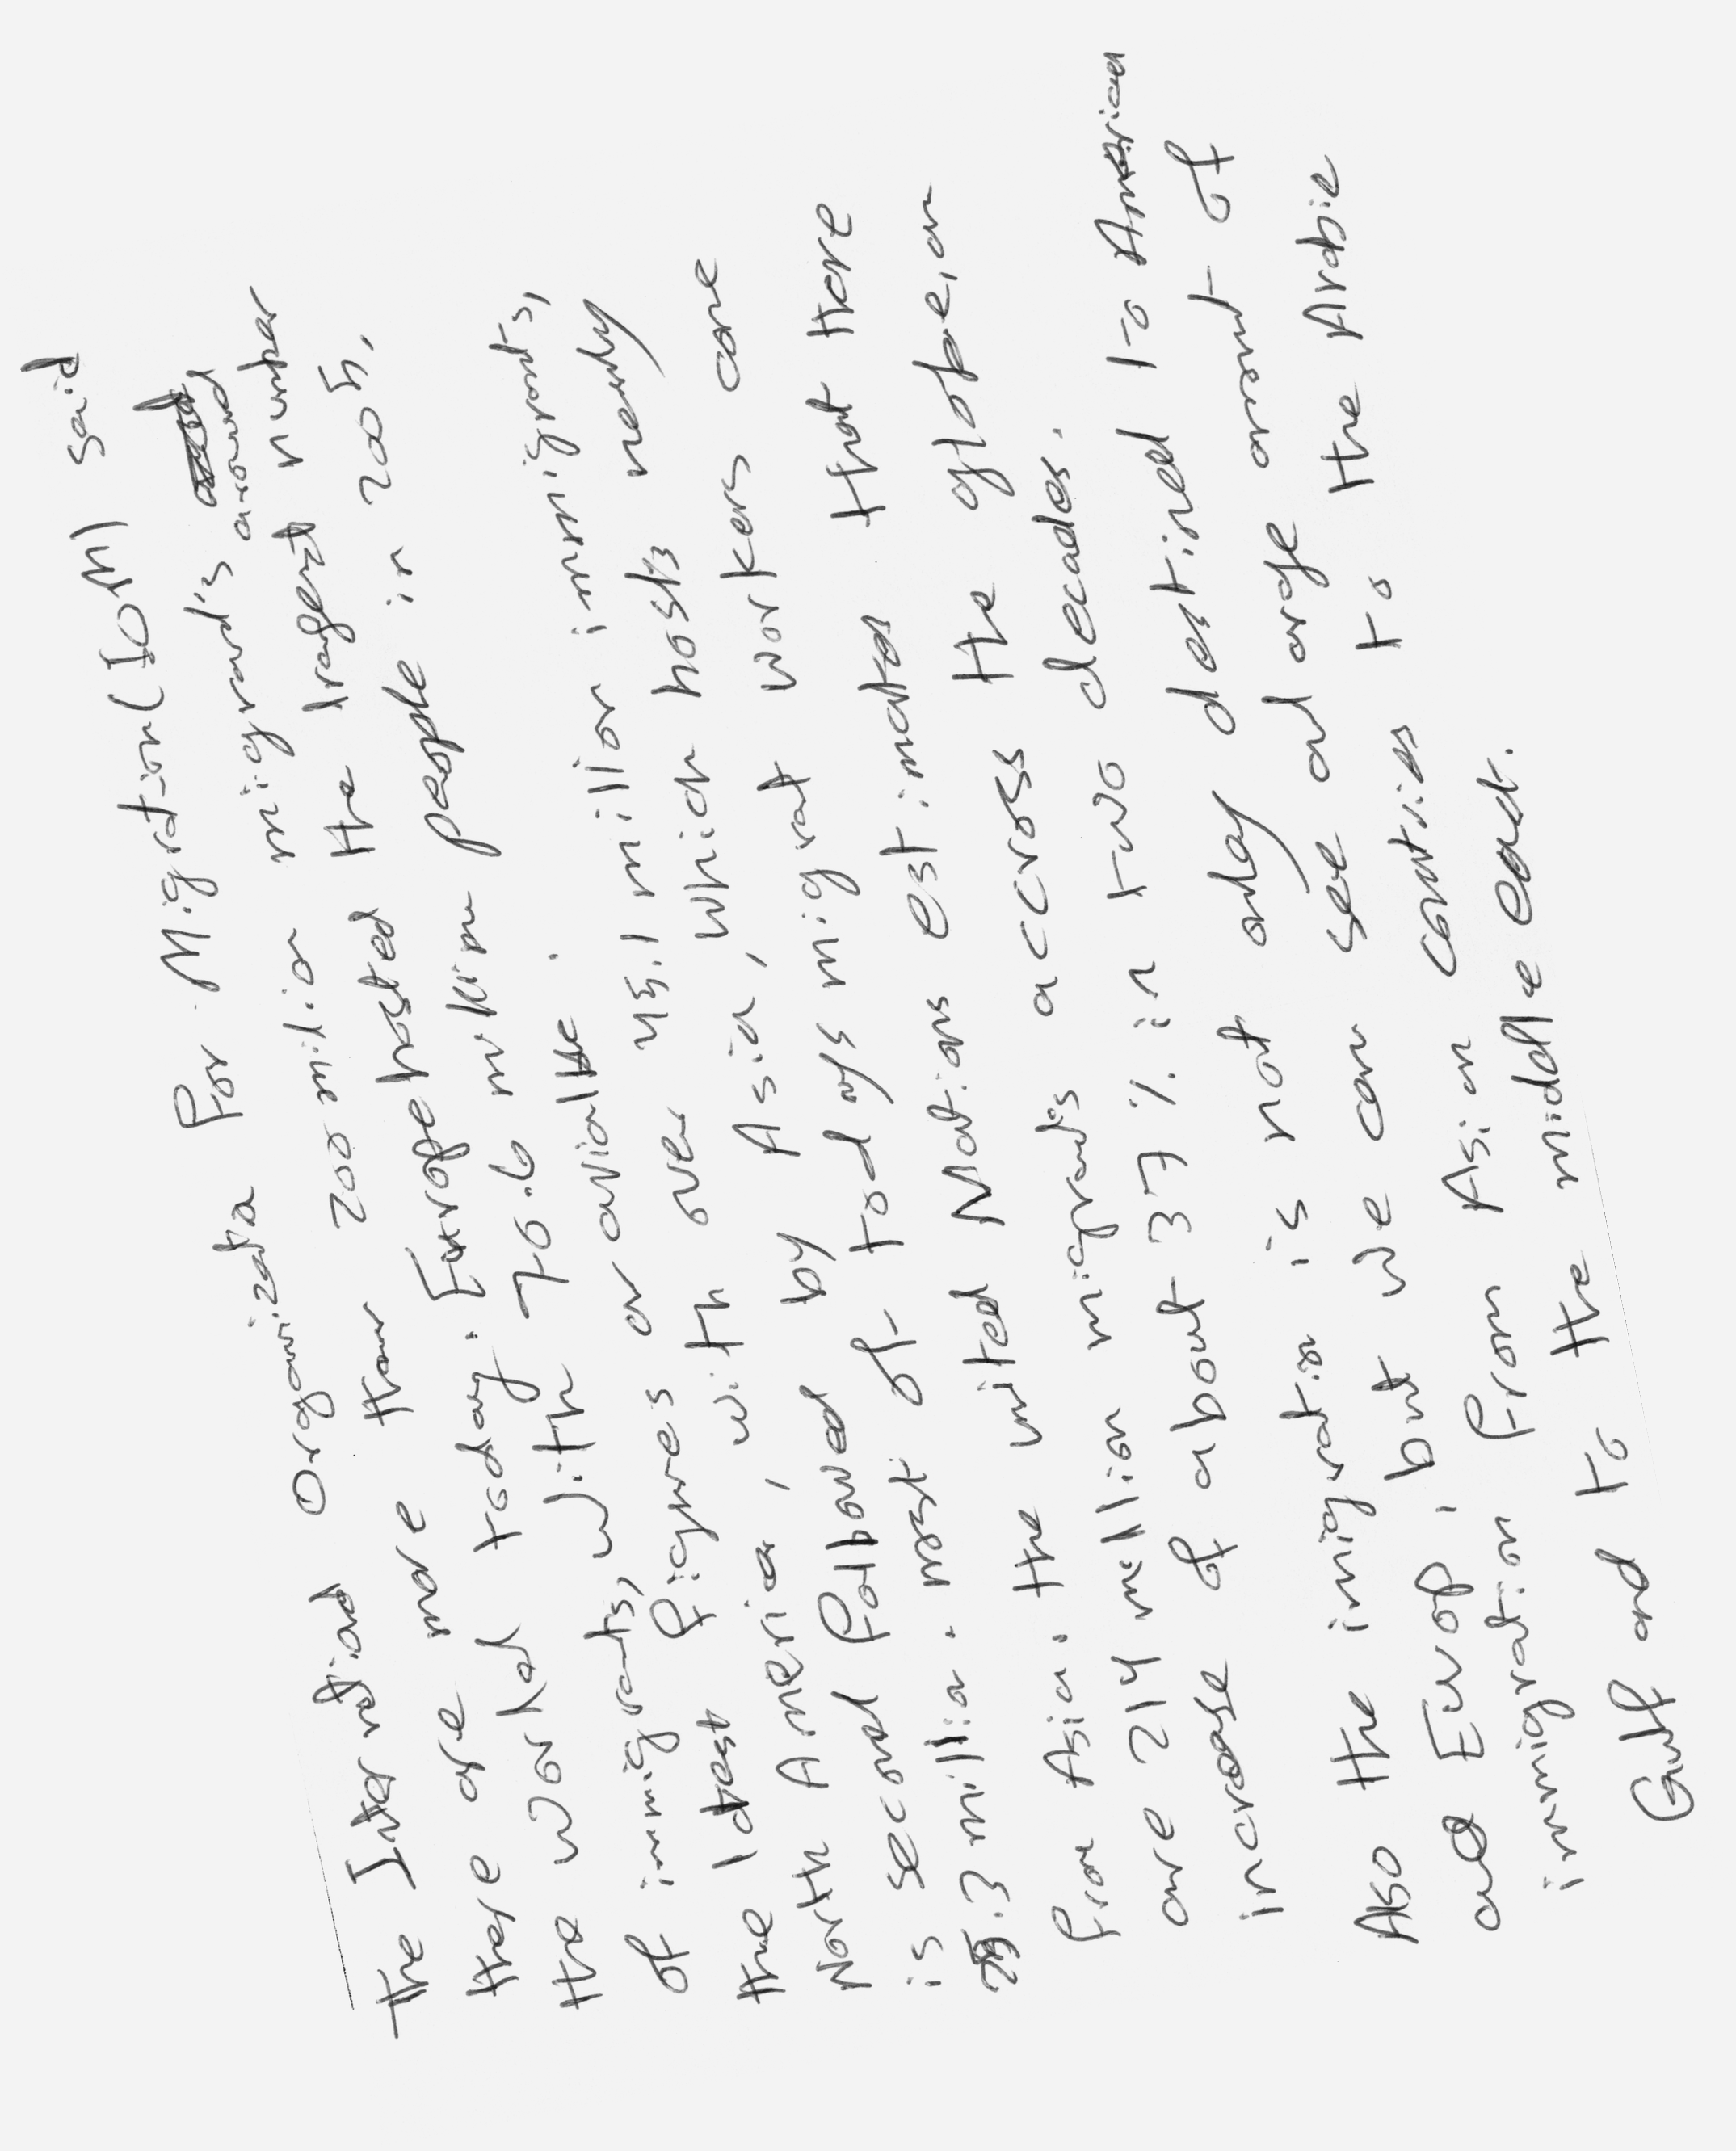 The International Organization For Migration (IOM) said
there are more than 200 million migrand's around
the workd today. Europe hosted the largest number
of immigrants, with 70.6 million people in 2005,
the latest figures ar avialble.
North America, with over 45.1 million immigrants,
is second Followed by Asia, which hosts nearly
25.3 million. most of todays migrat workers come
from Asia. the united Nations estimates that there
are 214 million migrand's across the globe, an
increase of about 37 % in two decades.
Also the imigration is not only destined to American
and Europ, but we can see alarge amount of
immigration from Asian contries to the Arabic
Gulf and to the middle east.